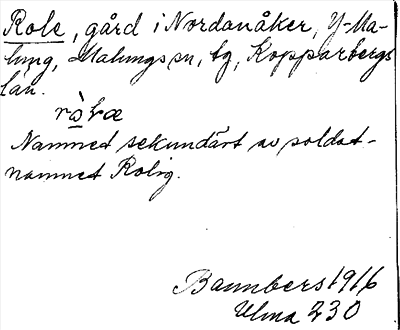 Role, gård i Nordanåker, Y-Ma-
lung, Malungs sn, tg, Kopparbergs
län.
Namnet sekundärt av soldat-
namnet Rolig.
Bannbers 1916
Ulma 230